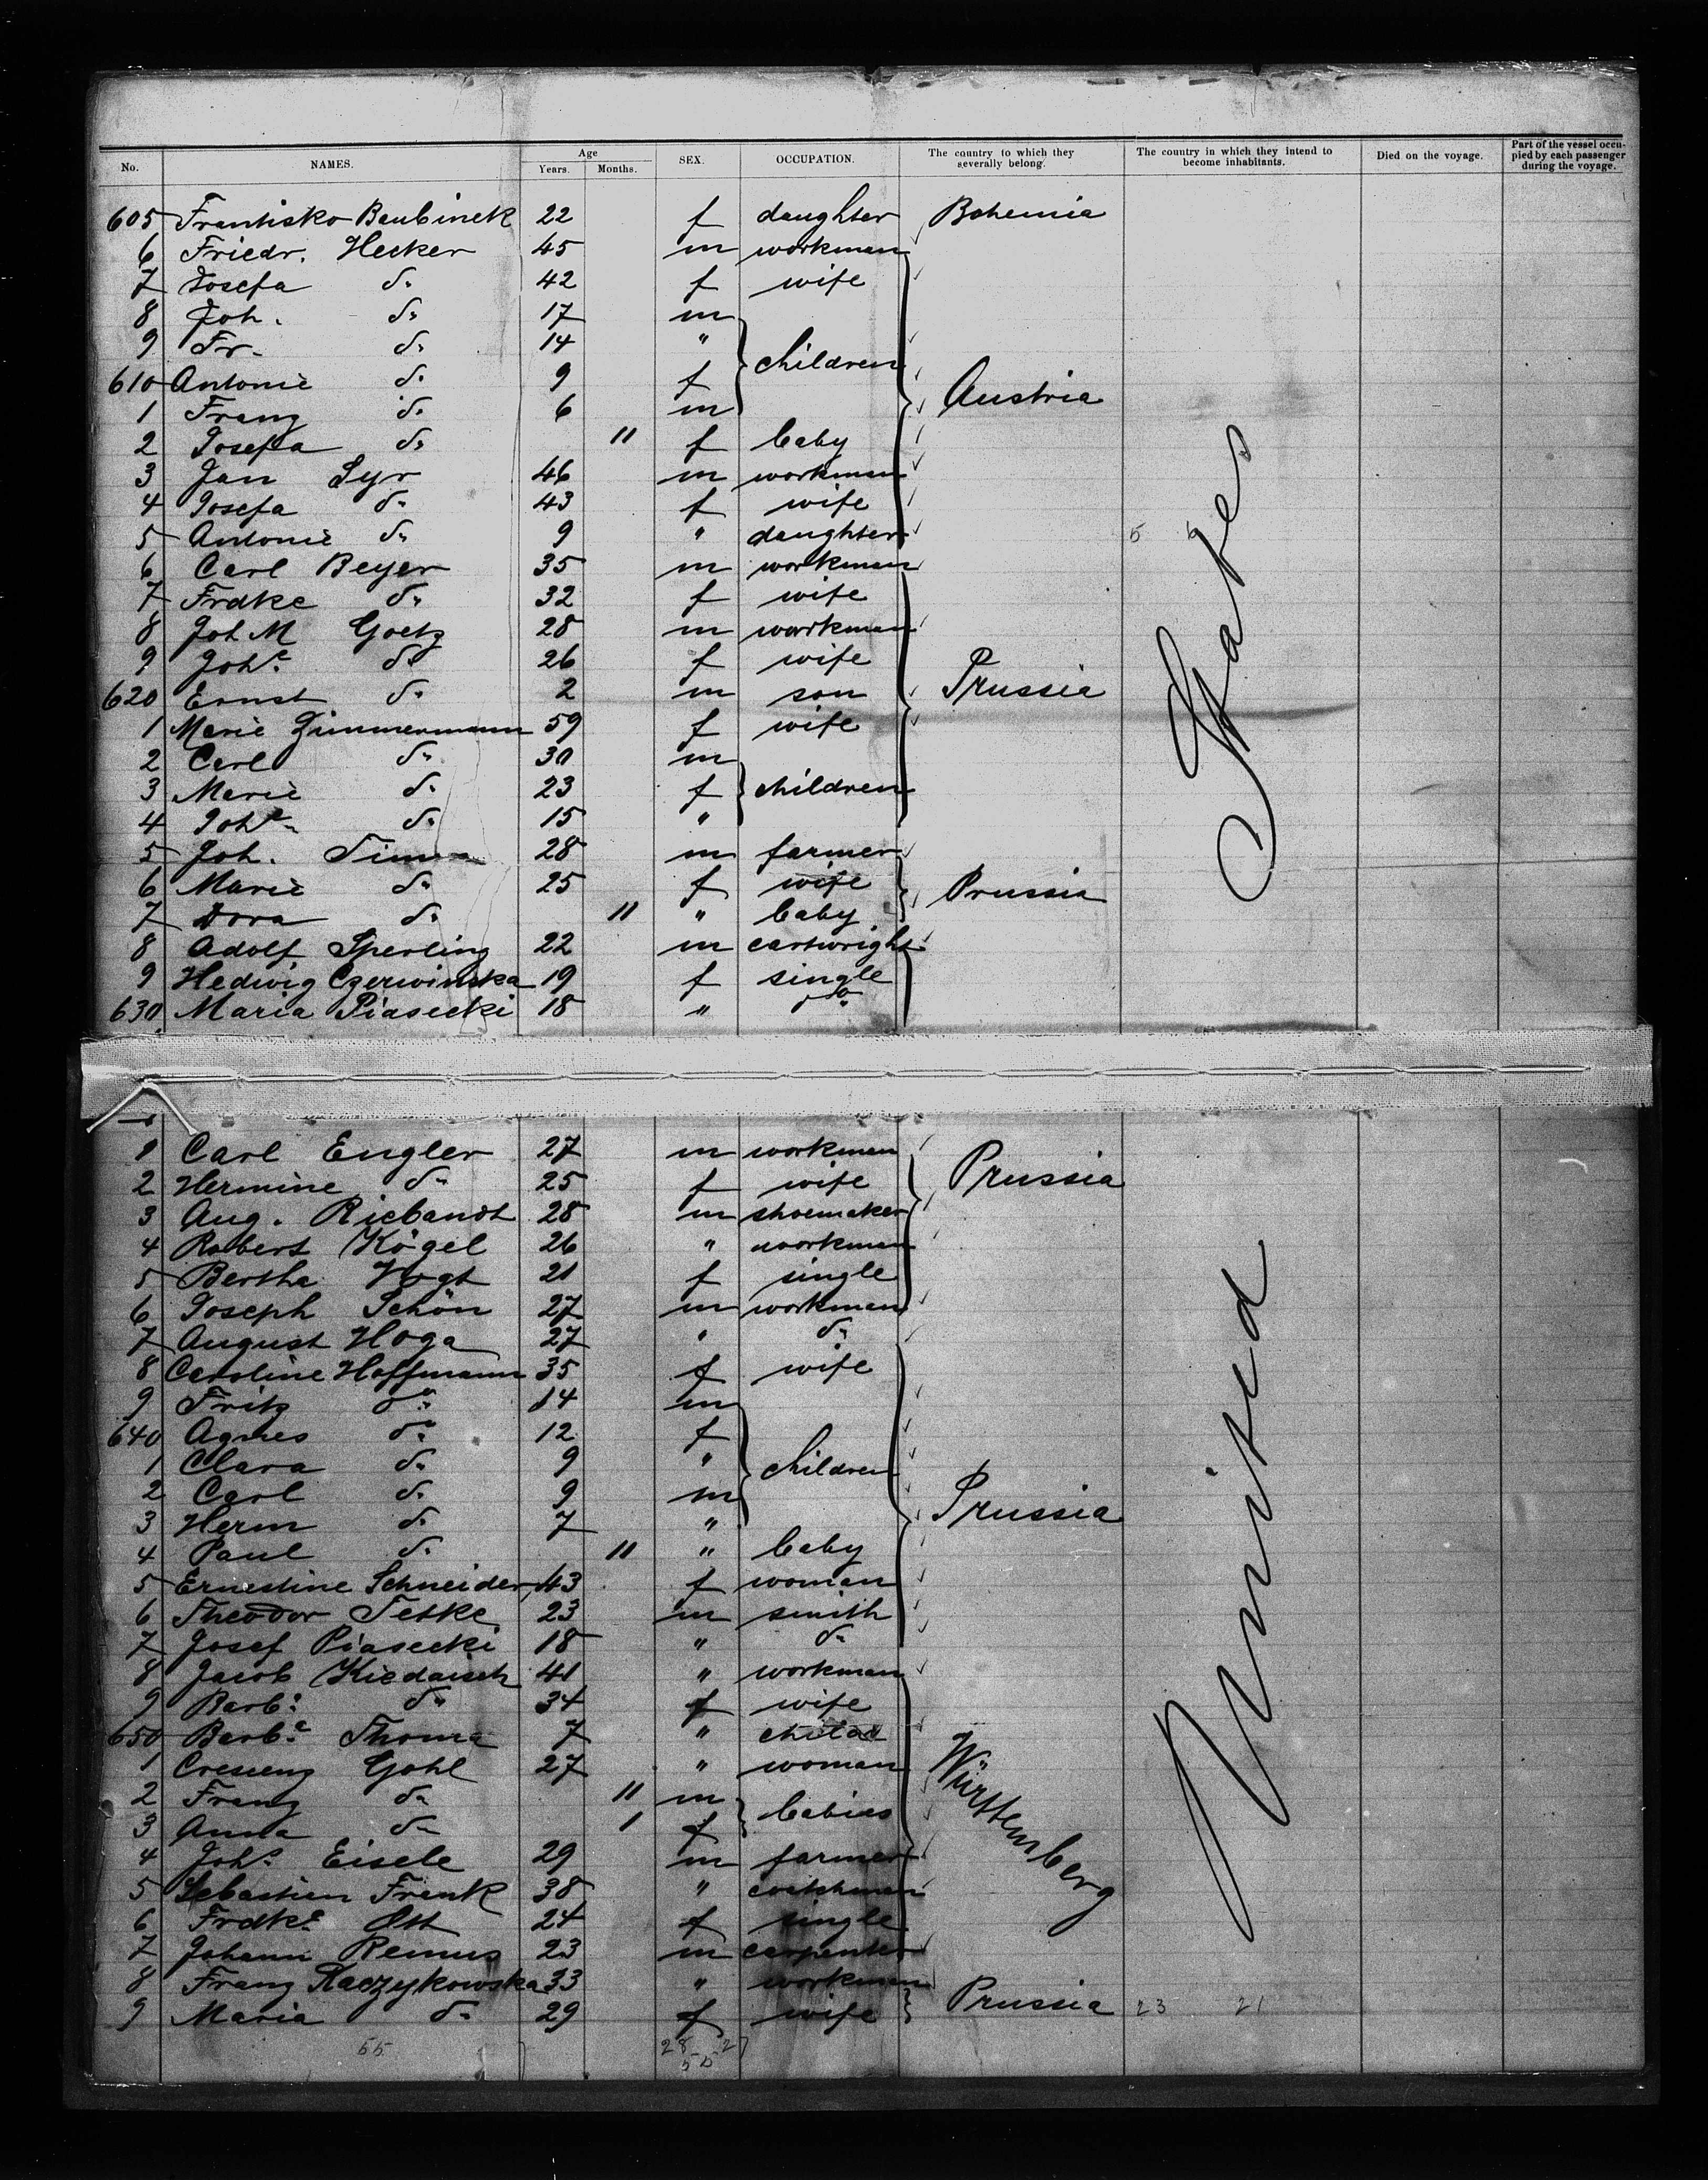 No. NAMES. Age Years. Months. SEX. OCCUPATION. The country to which they severally belong. The country in which they intend to become inhabitants. Died on the voyage. Part of the vessel occupied by each passenger during the voyage.
605 Frantisko Baubinek 22 f daughter Bohemia
6 Friedr. Hecker 45 m workman
7 Josefa do 42 f wife
8 Joh. do 17 m
9 Fr. do 14 "
children
610 Antonie do 9 f
Austria
1 Franz do 6 m
2 Josefa do 11 f baby
3 Jan Syr 46 m workman
4 Josefa do 43 f wife
5 Antonie do 9 " daughter
6 Carl Beyer 35 m workman
7 Frdke do 32 f wife
8 Joh M Goetz 28 m workman
9 Johe do 26 f wife
620 Ernst do 2 m son Prussia
1 Marie Zimmermann 59 f wife
2 Carl do 30 m
3 Marie do 23 f children
4 Johe do 15 "
5 Joh. 28 m farmer
6 Marie do 25 f wife Prussia
7 Dora do 11 " baby
8 Adolf Sperling 22 m cartwright
9 Hedwig Czerwinska 19 f single
630 Maria Piasecki 18 " do
States
1 Carl Engler 27 m workman
2 Hermine do 25 f wife Prussia
3 Aug. Riebandt 28 m shoemaker
4 Robert Kögel 26 " workman
5 Bertha Vogt 21 f single
6 Joseph Schön 27 m workman
7 August Hoga 27 " do
8 Caroline Hoffmann 35 f wife
9 Fritz do 14 m
640 Agnes do 12 f
1 Clara do 9 "
children
2 Carl do 9 m
3 Herm do 7 " Prussia
4 Paul do 11 " baby
5 Ernestine Schneider 43 f woman
6 Theodor Tetke 23 m smith
7 Josef Piasecki 18 " do
8 Jacob Kiedaisch 41 " workman
9 Barb. do 34 f wife
650 Barb. Thoma 7 " child
1 Crescenz Gohl 27 " woman
2 Franz do 11 m
babies
3 Anna do 1 f
Württemberg
4 Johs Eisele 29 m farmer
5 Sebastien Frenk 38 " coachman
6 Frdke Ott 24 f single
7 Johann Remus 23 m carpenter
8 Franz Raczykowska 33 " workman
9 Maria do 29 f wife Prussia 23 21
United
55 28 27
55